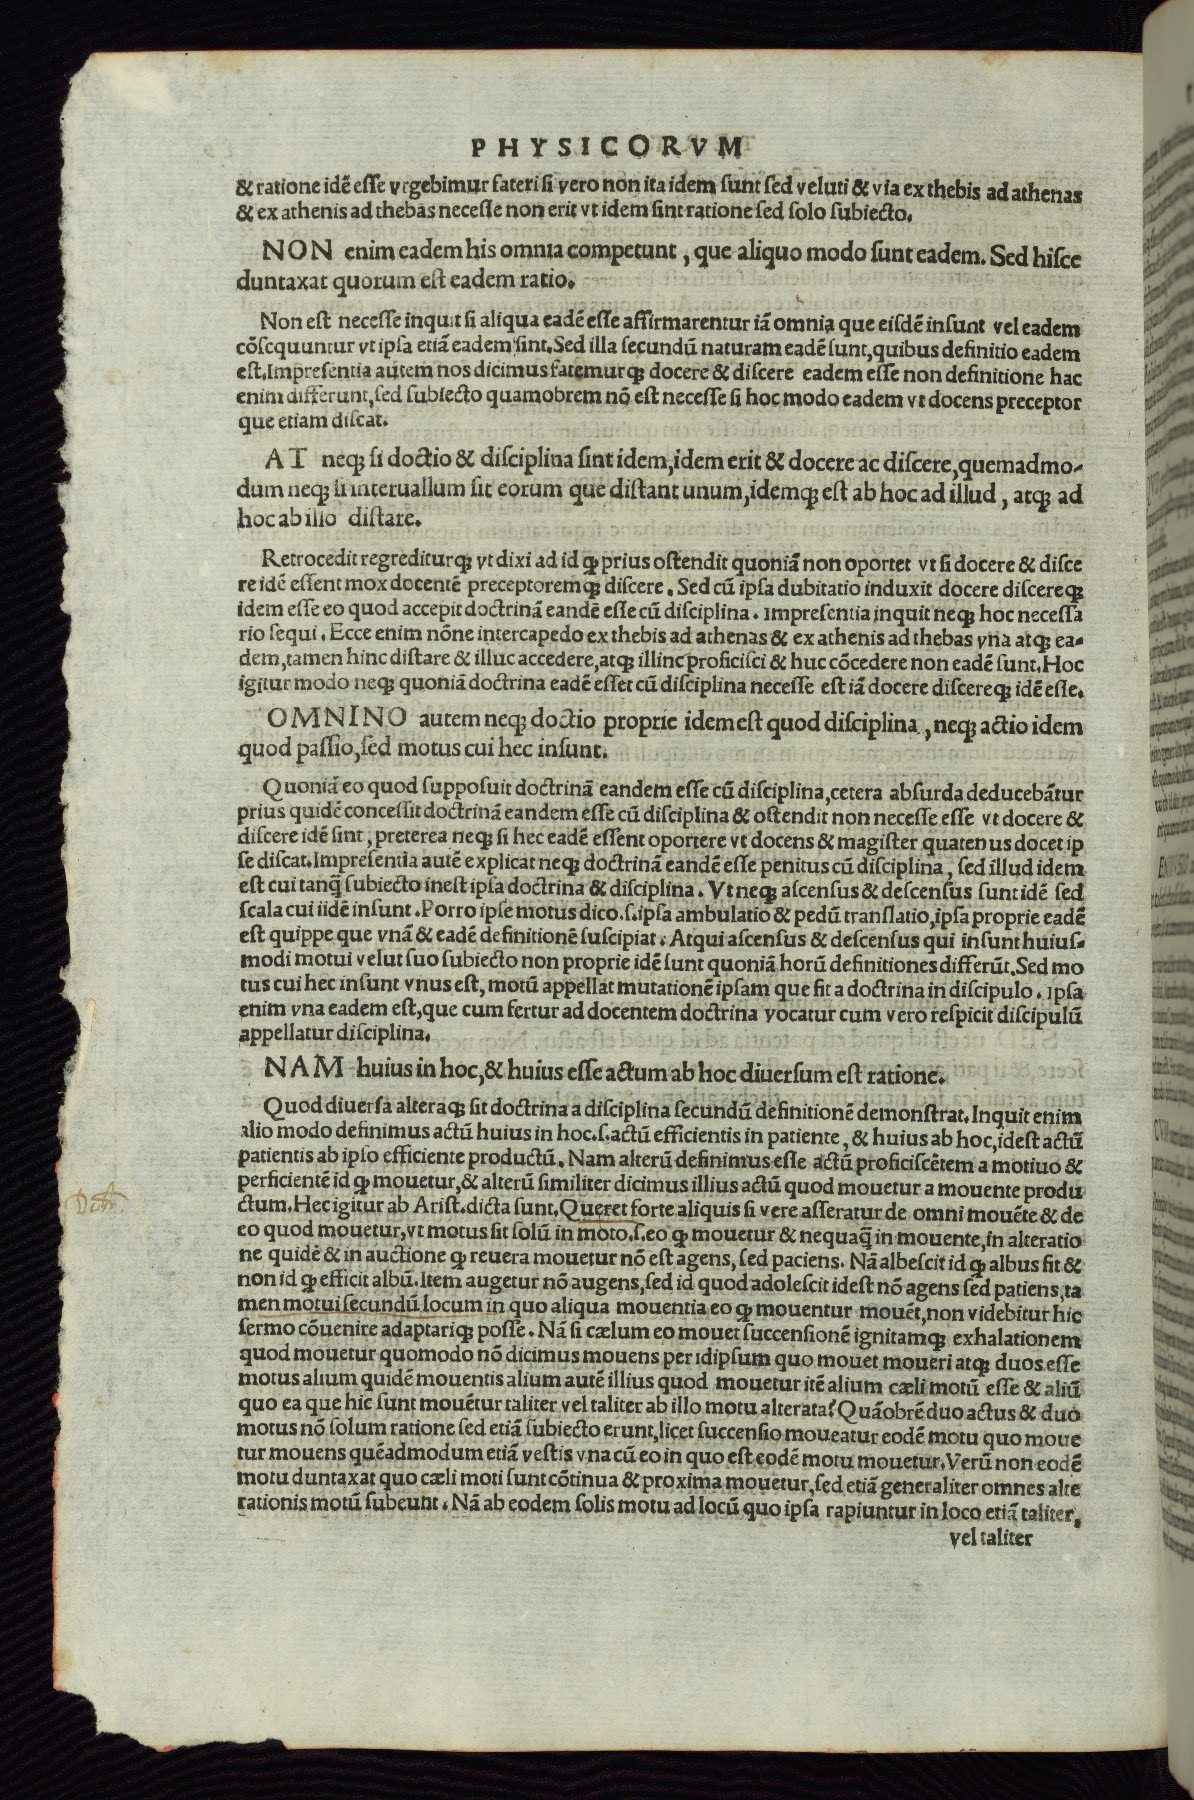 PHYSICORVM
& ratione idẽ esse vrgebimur fateri si vero non ita idem sunt sed veluti & via ex thebis ad athenas
& ex athenis ad thebas necesse non erit vt idem sint ratione sed solo subiecto.
NON enim eadem his omnia competunt, que aliquo modo sunt eadem. Sed hisce
duntaxat quorum est eadem ratio.
Non est necesse inquit si aliqua eadẽ esse affirmarentur iã omnia que eisdẽ insunt vel eadem
cõscquuntur vt ipsa etiã eadem sint. Sed illa secundũ naturam eadẽ sunt, quibus definitio eadem
est. Impresentia autem nos dicimus fatemurqꝫ docere & discere eadem esse non definitione hac
enim differunt, sed subiecto quamobrem nõ est necesse si hoc modo eadem vt docens preceptor
que etiam discat.
AT neqꝫ si doctio & disciplina sint idem, idem erit & docere ac discere, quemadmo-
dum neqꝫ si interuallum sit eorum que distant unum, idemqꝫ est ab hoc ad illud, atqꝫ ad
hoc ab illo distare.
Retrocedit regrediturqꝫ vt dixi ad id ꝙ prius ostendit quoniã non oportet vt si docere & disce
re idẽ essent mox docentẽ preceptoremqꝫ discere. Sed cũ ipsa dubitatio induxit docere discereqꝫ
idem esse eo quod accepit doctrinã eandẽ esse cũ disciplina. impresentia inquit neqꝫ hoc necessa
rio sequi. Ecce enim nõne intercapedo ex thebis ad athenas & ex athenis ad thebas vna atqꝫ ea-
dem, tamen hinc distare & illuc accedere, atqꝫ illinc proficisci & huc cõcedere non eadẽ sunt. Hoc
igitur modo neqꝫ quoniã doctrina eadẽ esset cũ disciplina necesse est iã docere discereqꝫ idẽ esse.
OMNINO autem neqꝫ doctio proprie idem est quod disciplina, neqꝫ actio idem
quod passio, sed motus cui hec insunt.
Quoniã eo quod supposuit doctrinã eandem esse cũ disciplina, cetera absurda deducebãtur
prius quidẽ concessit doctrinã eandem esse cũ disciplina & ostendit non necesse esse vt docere &
discere idẽ sint, preterea neqꝫ si hec eadẽ essent oportere vt docens & magister quatenus docet ip
se discat. Impresentia autẽ explicat neqꝫ doctrinã eandẽ esse penitus cũ disciplina, sed illud idem
est cui tanq̃ subiecto inest ipsa doctrina & disciplina. Vt neqꝫ ascensus & descensus sunt idẽ sed
scala cui iidẽ insunt. Porro ipse motus dico .s. ipsa ambulatio & pedũ translatio, ipsa proprie eadẽ
est quippe que vnã & eadẽ definitionẽ suscipiat. Atqui ascensus & descensus qui insunt huius-
modi motui velut suo subiecto non proprie idẽ sunt quoniã horũ definitiones differũt. Sed mo
tus cui hec insunt vnus est, motũ appellat mutationẽ ipsam que fit a doctrina in discipulo. ipsa
enim vna eadem est, que cum fertur ad docentem doctrina vocatur cum vero respicit discipulũ
appellatur disciplina.
NAM huius in hoc, & huius esse actum ab hoc diuersum est ratione.
Quod diuersa alteraqꝫ sit doctrina a disciplina secundũ definitionẽ demonstrat. Inquit enim
alio modo definimus actũ huius in hoc .s. actũ efficientis in patiente, & huius ab hoc, idest actũ
patientis ab ipso efficiente productũ. Nam alterũ definimus esse actũ proficiscẽtem a motiuo &
perficientẽ id ꝙ mouetur, & alterũ similiter dicimus illius actũ quod mouetur a mouente produ
ctum. Hec igitur ab Arist. dicta sunt. Queret forte aliquis si vere asseratur de omni mouẽte & de
eo quod mouetur, vt motus sit solũ in moto .s. eo ꝙ mouetur & nequaq̃ in mouente, in alteratio
ne quidẽ & in auctione ꝙ reuera mouetur nõ est agens, sed paciens. Nã albescit id ꝙ albus fit &
non id ꝙ efficit albũ. Item augetur nõ augens, sed id quod adolescit idest nõ agens sed patiens, ta
men motui secundũ locum in quo aliqua mouentia eo ꝙ mouentur mouẽt, non videbitur hic
sermo cõuenire adaptariqꝫ posse. Nã si cælum eo mouet succensionẽ ignitamqꝫ exhalationem
quod mouetur quomodo nõ dicimus mouens per idipsum quo mouet moueri atqꝫ duos esse
motus alium quidẽ mouentis alium autẽ illius quod mouetur itẽ alium cæli motũ esse & aliũ
quo ea que hic sunt mouẽtur taliter vel taliter ab illo motu alterata? Quãobrẽ duo actus & duo
motus nõ solum ratione sed etiã subiecto erunt, licet succensio moueatur eodẽ motu quo moue
tur mouens quẽadmodum etiã vestis vna cũ eo in quo est eodẽ motu mouetur. Verũ non eodẽ
motu duntaxat quo cæli moti sunt cõtinua & proxima mouetur, sed etiã generaliter omnes alte
rationis motũ subeunt. Nã ab eodem solis motu ad locũ quo ipsa rapiuntur in loco etiã taliter,
vel taliter